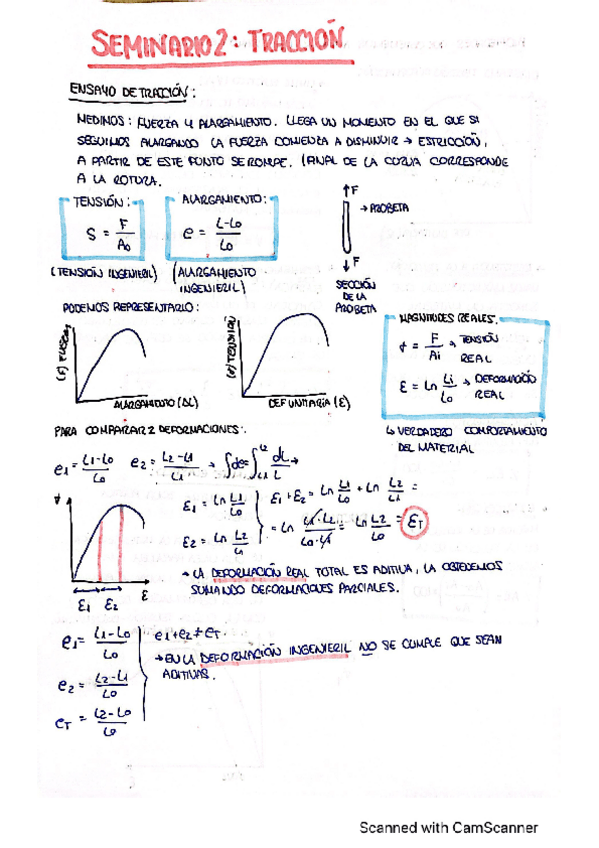 SEMINARIO 2: TRACCIÓN
ENSAYO DE TRACCIÓN:
MEDIMOS: FUERZA Y ALARGAMIENTO. LLEGA UN MOMENTO EN EL QUE SI
SEGUIMOS ALARGANDO LA FUERZA COMIENZA A DISMINUIR → ESTRICCIÓN,
A PARTIR DE ESTE PUNTO SE ROMPE. (FINAL DE LA CURVA CORRESPONDE
A LA ROTURA.
TENSIÓN:
S = F/A₀
(TENSIÓN INGENIERIL)
ALARGAMIENTO:
e = L-L₀/L₀
(ALARGAMIENTO
INGENIERIL)
↑F
→ PROBETA
↓F
SECCIÓN
DE LA
PROBETA
PODEMOS REPRESENTARLO:
(F) FUERZA
ALARGAMIENTO (ΔL)
TENSIÓN
DEF UNITARIA (ε)
MAGNITUDES REALES.
σ = F/Ai → TENSIÓN
REAL
ε = Ln Li/L₀ → DEFORMACIÓN
REAL
↳ VERDADERO COMPORTAMIENTO
DEL MATERIAL
PARA COMPARAR 2 DEFORMACIONES:
e₁ = L1-L₀/L₀ e₂ = L2-L1/L1 → ∫de = ∫L1 L2 dL/L →
ε₁ = Ln L1/L₀
ε₂ = Ln L2/L1
ε₁ + ε₂ = Ln L1/L₀ + Ln L2/L1 =
= Ln L1·L2/L₀·L1 = Ln L2/L₀ = εT
σ
ε₁ ε₂ ε
→ LA DEFORMACIÓN REAL TOTAL ES ADITIVA, LA OBTENEMOS
SUMANDO DEFORMACIONES PARCIALES.
e₁ = L1-L₀/L₀
e₂ = L2-L1/L1
eT = L2-L₀/L₀
e₁+e₂≠eT
→ EN LA DEFORMACIÓN INGENIERIL NO SE CUMPLE QUE SEAN
ADITIVAS.
Scanned with CamScanner